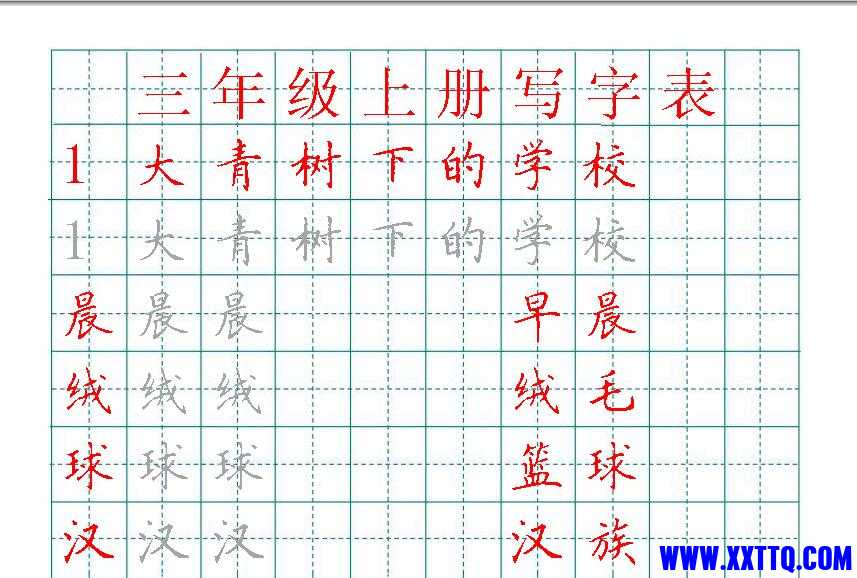 三年级上册写字表
1 大青树下的学校
1 大青树下的学校
晨 晨 晨 早晨
绒 绒 绒 绒毛
球 球 球 篮球
汉 汉 汉 汉族
WWW.XXTTQ.COM